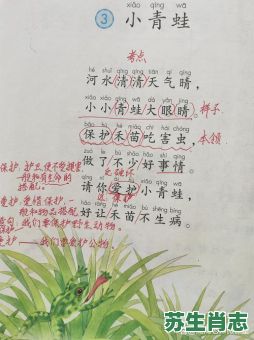 xiǎo qīng wā
3 小青蛙
考点
hé shuǐ qīng qīng tiān qì qíng
河水清清天气晴，
xiǎo xiǎo qīng wā dà yǎn jīng
小小青蛙大眼睛。样子
bǎo hù hé miáo chī hài chóng
保护禾苗吃害虫，本领
做了不少好事情。
qǐng nǐ ài hù xiǎo qīng wā
请你爱护小青蛙，
好让禾苗不生病。
保护：护卫，使不受损害，
搭配。
爱护：爱惜保护，一
般和物品搭配。
造句：我们要保护野生动物。
我们要爱护公物。
苏生肖志